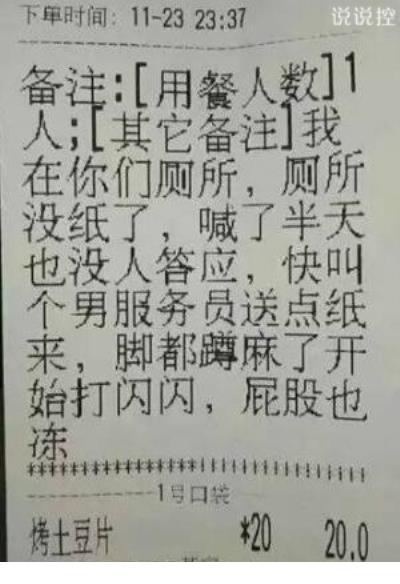 下单时间: 11-23 23:37
说说控
备注:[用餐人数]1
人;[其它备注]我
在你们厕所，厕所
没纸了，喊了半天
也没人答应，快叫
个男服务员送点纸
来，脚都蹲麻了开
始打闪闪，屁股也
冻
1号口袋
烤土豆片 *20 20.0